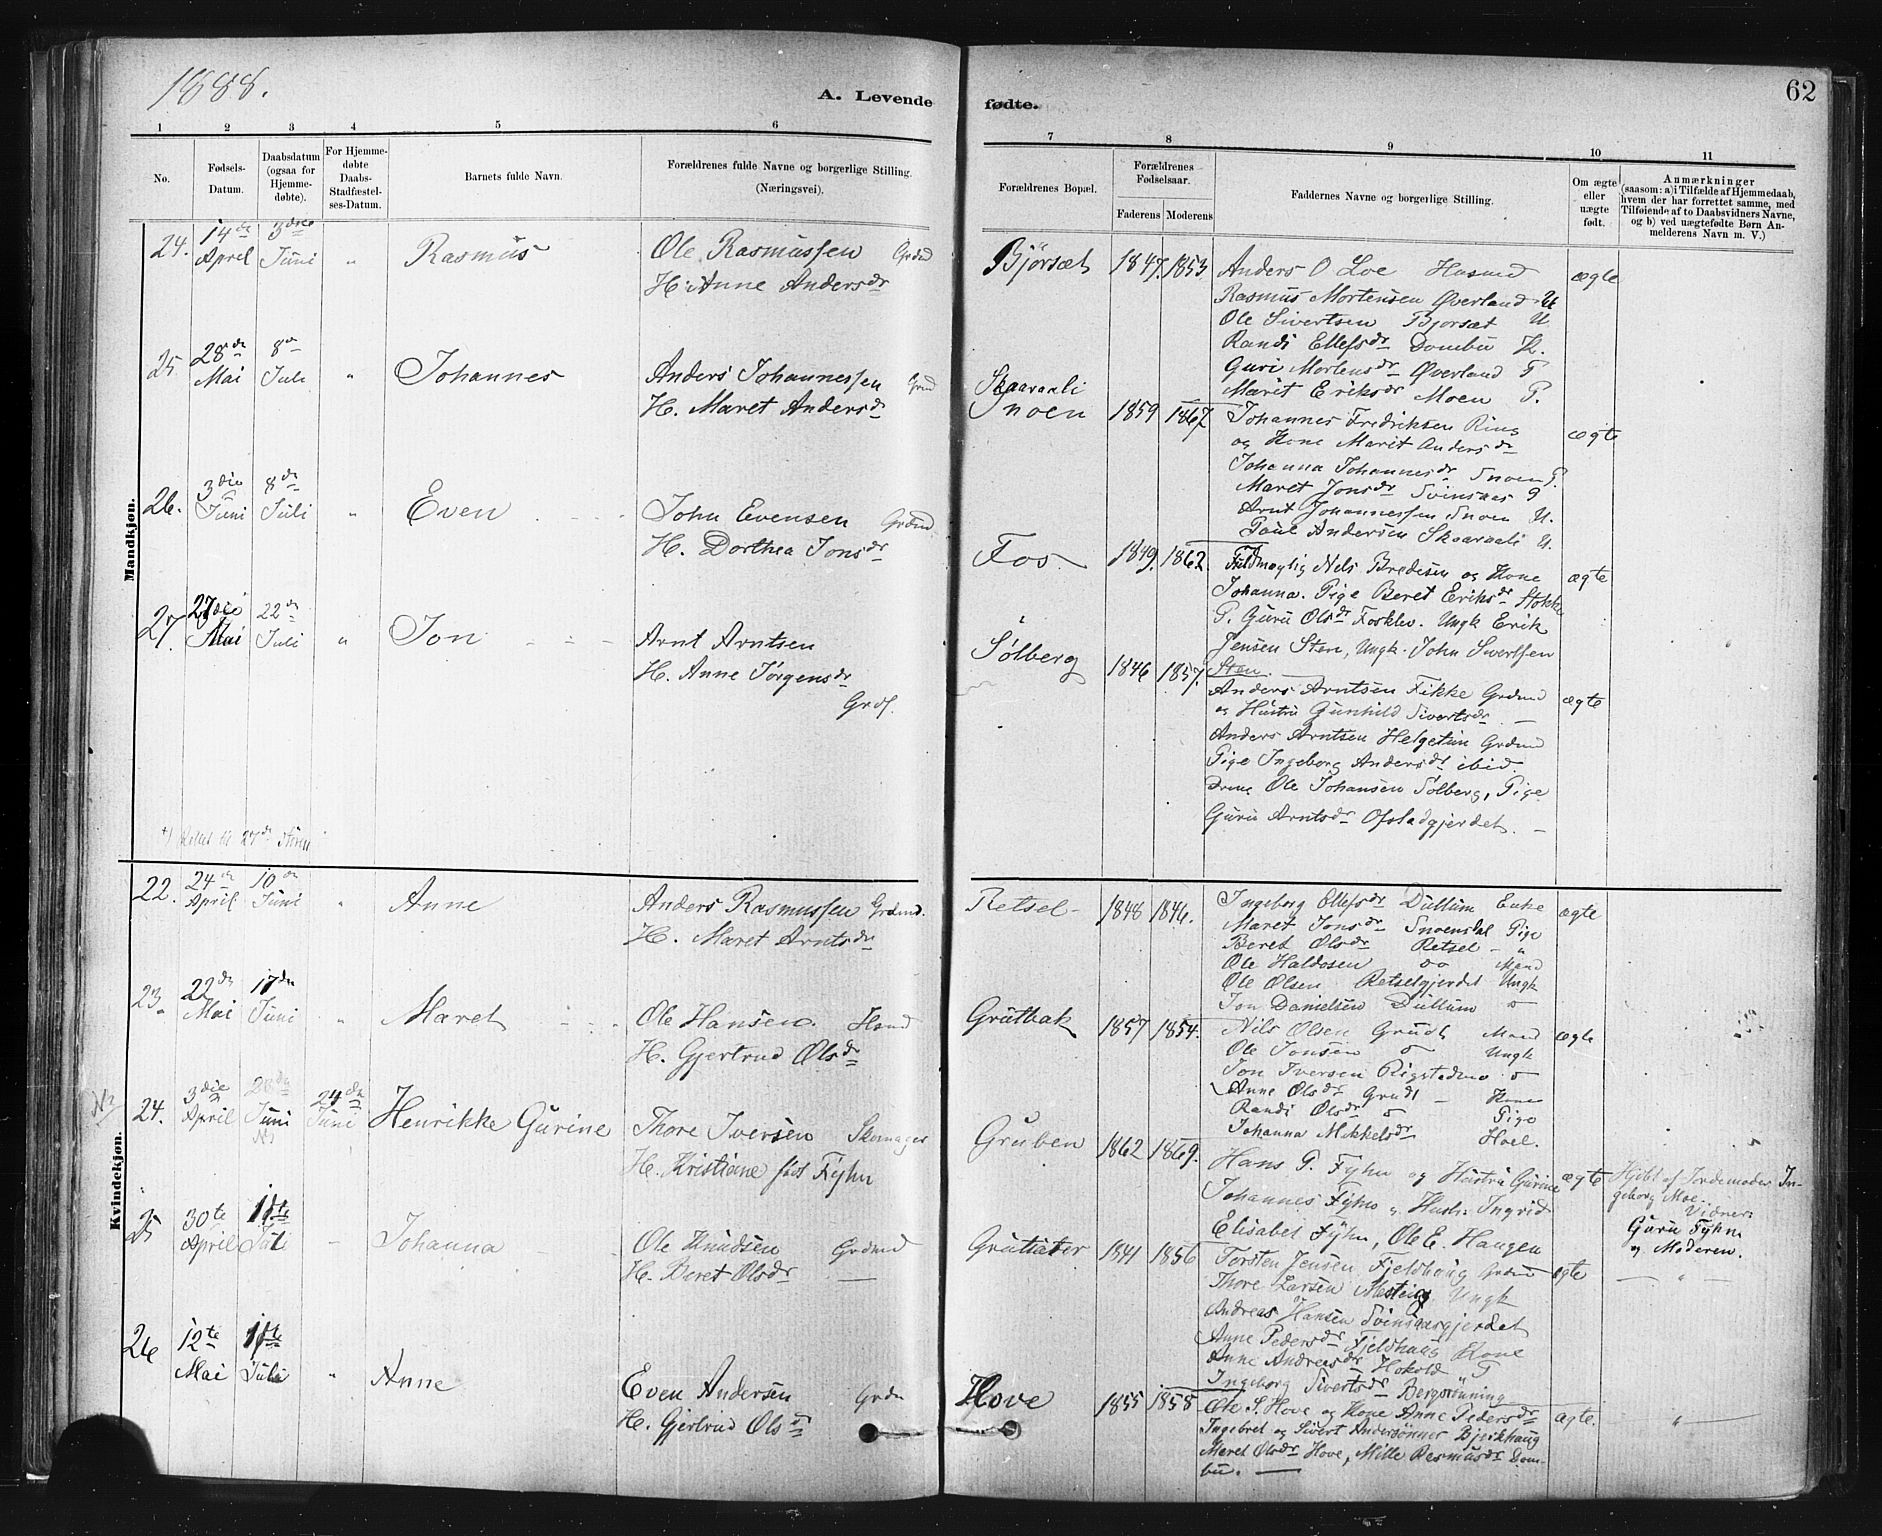 1888.
A. Levende
fødte.
62
1 2 3 4 5 6 7 8 9 10 11
No.
Fødsels-
Datum.
Daabsdatum
(ogsaa for
Hjemme-
døbte).
For Hjemme-
døbte
Daabs-
Stadfæstel-
ses-Datum.
Barnets fulde Navn.
Forældrenes fulde Navne og borgerlige Stilling.
(Næringsvei).
Forældrenes Bopæl.
Forældrenes
Fødselsaar.
Faderens Moderens
Faddernes Navne og borgerlige Stilling.
Om ægte
eller
uægte
født.
Anmærkninger
(saasom: a) i Tilfælde af Hjemmedaab,
hvem der har forrettet samme, med
Tilføiende af to Daabsvidners Navne,
og b) ved uægtefødte Børn An-
melderens Navn m. V.)
Mandkjøn.
24. 14de April 3die Juni " Rasmus
Ole Rasmussen Grdmd
H. Anne Andersdr
Bjørsæt 1847. 1853
Anders O Loe Husmd
Rasmus Mortensen Øverland U
Ole Sivertsen Bjorsæt U
Randi Ellefsdr Dombu K.
Guri Mortensdr Øverland P
Marit Eriksdr Moen P.
ægte
25 28de Mai 8de Juli " Johannes
Anders Johannessen Grd
H. Maret Andersdr
Skaaraali
Snoen 1859 1867.
Johannes Fredriksen Ring
og Kone Marit Andersdr
Johanna Johannesdr Snoen P.
Maret Jonsdr Svinsaas P
Arnt Johannessen Snoen U.
Paul Andersen Skaaraali U.
ægte
26. 3die Juni 8de Juli " Even
John Evensen Grdmd
H. Dorthea Jonsdr
Fos 1849. 1862.
Fuldmægtig Nels Bredesen og Kone
Johanna. Pige Beret Eriksdr Stokke
P. Guru Olsdr Fosklev. Ungk Erik
Jensen Sten, Ungk. John Sivertsen
Sten.
ægte
27. 27de Mai 22de Juli " Jon
Arnt Arntsen
H. Anne Jørgensdr
Grdf.
Sølberg 1846 1857.
Anders Arntsen Fikke Grdmd
og Hustru Gunhild Sivertsdr —
Anders Arntsen Helgetun Grdmd
Pige Ingeborg Andersdr ibid
Dreng Ole Johansen Sølberg, Pige
Guru Arntsdr Ofstadgjerdet. —
ægte
Kvindekjøn.
22. 24de April 10de Juni " Anne
Anders Rasmussen Grdmd.
H. Maret Arntsdr
Retsel 1848 1846.
Ingeborg Ellefsdr Dullum Enke
Maret Jonsdr Snoensdal Pige
Beret Olsdr Retsel "
Ole Haldosen do Mand
Ole Olsen Retselgjerdet Ungk
Jon Danielsen Dullum o
ægte
23. 22de Mai 17de Juni " Maret
Ole Hansen
H. Gjertrud Olsdr
Grutbak 1857 1854.
Nils Olsen Grudt Mand
Ole Jonsen o Ungk
Jon Iversen Rigstadmo o
Anne Olsdr Grudt — Kone
Randi Olsdr o Pige
Johanna Mikkelsdr Hoel.
ægte
24. 3die April Juni 24de Juni Henrikke Gurine
Thore Iversen Skomager
H. Kristiane født Fyhn
Gruben 1862 1869.
Hans P. Fyhn og Hustru Gurine
Johannes Fyhn " Hustr. Ingrid
Elisabet Fyhn, Ole E. Haugen
ægte
Hjdbt af Jordemoder In-
geborg Moe.
Vidner:
Guru Fyhn
og Moderen.
25 30te April 1ste Juli — Johanna
Ole Knudsen Grdmd
H. Beret Olsdr —
Grutsæter 1841 1856
Torsten Jensen Fjeldhaug Grdmd
Thore Larsen Ungk
Andreas Hansen Svinsaasgjerdet
Anne Pedersdr Fjeldhaug Kone
Anne Andreasdr Hokold P
Ingeborg Sivertsdr
ægte
— " —
26 12te Mai 1ste Juli " Anne
Even Andersen Grdm
H. Gjertrud Olsdr
Hove 1855 1858
Ole S. Hove og Kone Anne Pedersdr
Ingebret og Sivert Andersønner Bjerkhaug
Maret Olsdr Hove, Mille Rasmusdr Dom-
bu. —
ægte.
" —